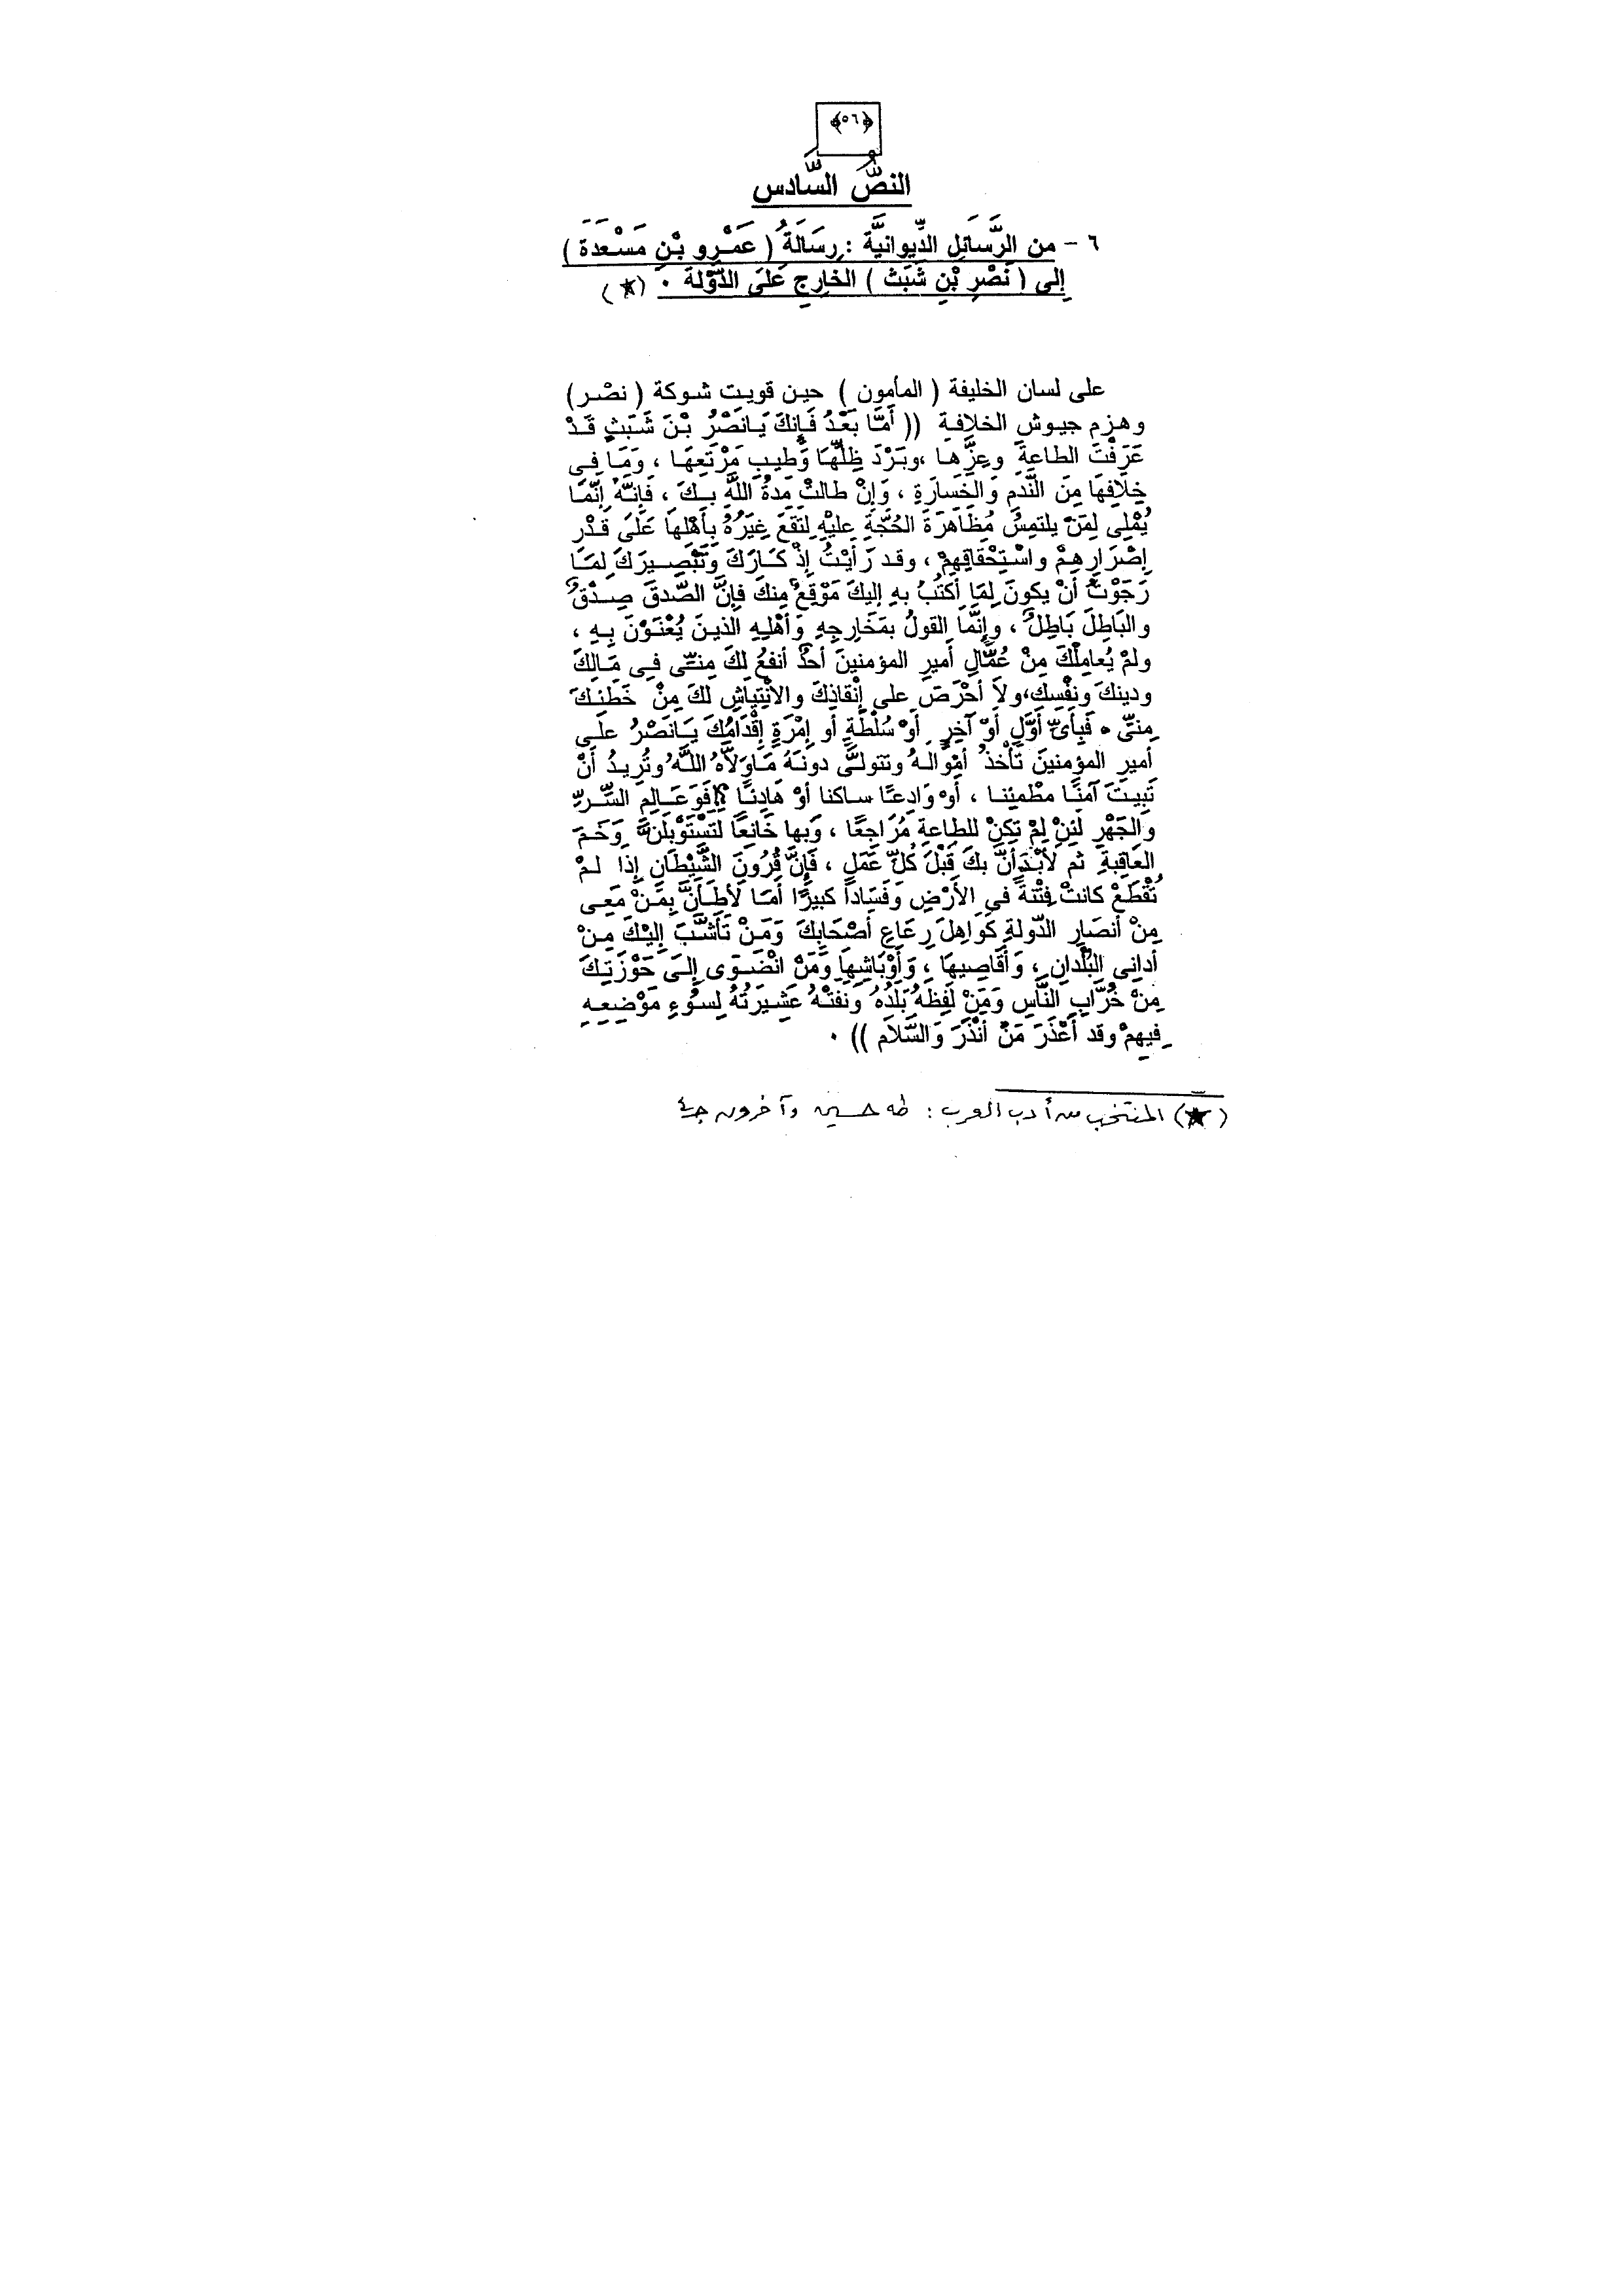 ﴿٥٦﴾
النصُّ السَّادس
٦ - من الرَّسائلِ الدِّيوانيَّة : رِسَالَةُ ( عَمْرِو بْنِ مَسْعَدَة )
إلى ( نَصْرِ بْنِ شَبَث ) الخارِجِ عَلَى الدَّوْلة ٠ (★)
على لسان الخليفة ( المأمون ) حين قويت شوكة ( نصْر )
وهزم جيوش الخلافة (( أمَّا بَعْدُ فَإنكَ يَانَصْرُ بْنَ شَبَثٍ قَدْ
عَرَفْتَ الطاعةَ وعِزَّها ،وبَرْدَ ظِلِّهَا وَطيبِ مَرْتَعِهَا ، وَمَا فِى
خِلافِهَا مِنَ النَّدَمِ وَالخَسارَةِ ، وَإنْ طالتْ مَدةُ اللَّهِ بِكَ ، فَإِنَّهُ إنَّمَا
يُمْلِى لِمَنْ يلتمِسُ مُظَاهَرَةَ الحُجَّةِ عليْهِ لِتَقَعَ غِيَرُهُ بِأَهْلِهَا عَلَى قَدْرِ
إصْرَارِهِمْ واسْتِحْقَاقِهِمْ ، وقد رَأيْتُ إذْ كَارَكَ وَتَبْصِيرَكَ لِمَا
رَجَوْتُ أنْ يكونَ لِمَا أكتُبُ بهِ إليكَ مَوْقِعٌ مِنكَ فإنَّ الصِّدقَ صِدْقٌ
والبَاطِلَ بَاطِلٌ ، وإنَّمَا القولُ بمَخَارِجِهِ وَأهْلِهِ الذينَ يُعْنَوْنَ بِهِ ،
ولمْ يُعامِلْكَ مِنْ عُمَّالِ أميرِ المؤمنينَ أحدٌ أنفعُ لكَ مِنِّى فِى مَالِكَ
ودينكَ ونفْسِكَ،ولاَ أحْرَصَ على إنْقاذِكَ والانْتِياشِ لكَ مِنْ خَطَئِكَ
مِنِّى ٠ فَبِأىِّ أوَّلٍ أوْ آخِرٍ أوْ سُلْطَةٍ أو إمْرَةٍ إقْدَامُكَ يَانَصْرُ علَى
أميرِ المؤمنينَ تَأْخذُ أمْوَالَهُ وتتولَّى دونَهُ مَاوَلاَّهُ اللَّهُ وتُرِيدُ أنْ
تَبِيتَ آمَنًا مطْمئِنا ، أوْ وَادِعًا ساكنا أوْ هَادِئًا ؟!فَوَعَالِمِ السِّرِّ
والجَهْرِ لئِنْ لمْ تكنْ للطاعةِ مُرَاجعًا ، وبها خَانِعًا لَتَسْتَوْبِلَنَّ وَخَمَ
العَاقِبةِ ثم لأبْدَأنَّ بكَ قَبْلَ كُلِّ عَمَلٍ ، فَإنَّ قُرُونَ الشَّيْطَانِ إذَا لمْ
تُقْطَعْ كانتْ فِتْنَةً فى الأرْضِ وَفَسَاداً كبيرًا أمَا لأطَأَنَّ بِمَنْ مَعِى
مِنْ أنصَارِ الدَّولةِ كَوَاهِلَ رِعَاعِ أصْحَابِكَ وَمَنْ تَأشَّبَ إليْكَ مِنْ
أدانِى البُلْدانِ ، وَأقَاصِيهَا ، وَأوْبَاشِهَا وَمَنْ انْضَوَى إلىَ حَوْزَتِكَ
مِنْ خُرَّابِ النَّاسِ وَمَنْ لَفِظَهُ بَلَدُهُ وَنفتْهُ عَشِيرَتُهُ لِسُوْءِ مَوْضِعِهِ
فِيهِمْ وقد أعْذَرَ مَنْ أنْذَرَ وَالسَّلاَم )) ٠
(★) المنتخب من أدب العرب : طه حسين وآخرون جـ٤